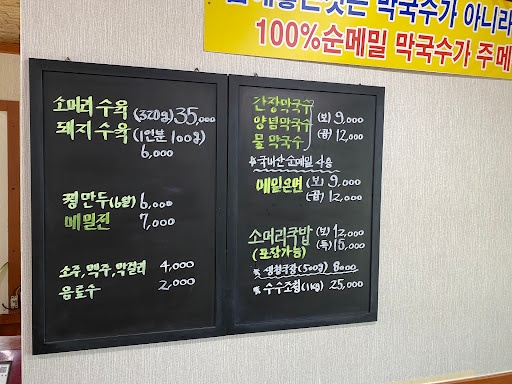 막국수가 아니라
100%순메밀 막국수가 주메
소머리수육 (320g) 35,000
돼지수육 (1인분 100g)
6,000
찐만두(6알) 6,000
메밀전 7,000
소주, 맥주, 막걸리 4,000
음료수 2,000
간장막국수
양념막국수
물막국수
(보) 9,000
(곱) 12,000
※국내산순메밀사용
메밀온면 (보) 9,000
(곱) 12,000
소머리국밥 (보) 12,000
(포장가능) (특) 15,000
※ 생청국장 (500g) 8000
※ 수수조청 (1kg) 25,000